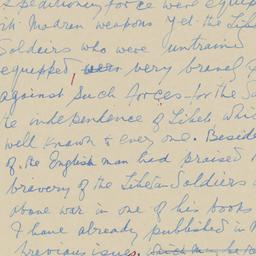 xpeditionery force were equip
ith Modran weapons yet the Tibe
Soldiers who were untrained
equipped very bravely
against such forces for the Sa
te independence of Tibet whic
well known to ever one. Beside
of the English man had praised
bravery of the Tibetan Soldiers
above war in one of his books
I have already published in
previous issue